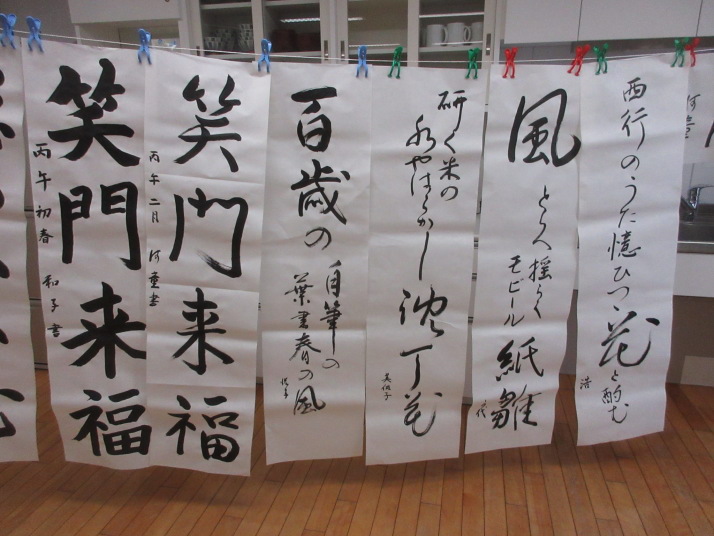 西行のうた憶ひつゝ
花と酌む
浩
風
とらへ揺らぐ
モビール
紙雛
研ぐ米の
水やはらかし
沈丁花
百歳の
自筆の
葉書春の風
笑門来福
丙午二月
笑門来福
丙午初春 和子書